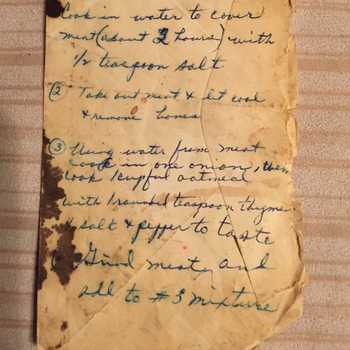 Cook in water to cover
meat (about 2 hours) with
1/2 teaspoon salt
② Take out meat & let cool
& remove bones
③ Using water from meat
cook in one onion, then
cook 1 cupful oatmeal
with 1 rounded teaspoon thyme
& salt & pepper to taste
Grind meat, and
add to #3 mixture